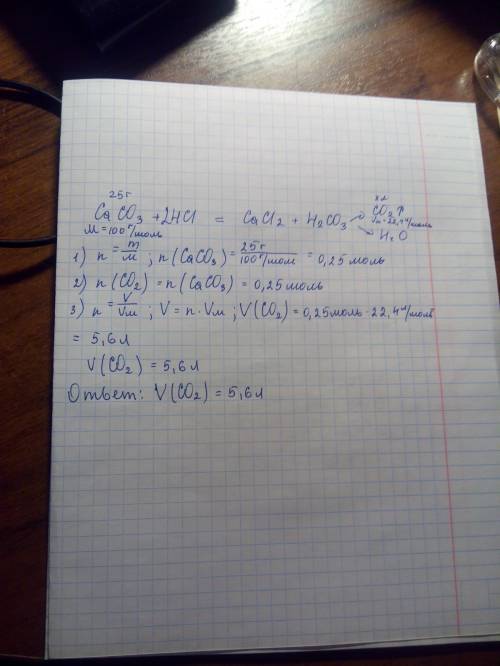 25г
CaCO₃ + 2HCl = CaCl₂ + H₂CO₃ → CO₂↑
M=100г/моль Vм=22,4л/моль
H₂O
1) n = m/M ; n(CaCO₃) = 25г/100г/моль = 0,25 моль
2) n(CO₂) = n(CaCO₃) = 0,25 моль
3) n = V/Vм ; V = n·Vм ; V(CO₂) = 0,25 моль·22,4л/моль
= 5,6 л
V(CO₂) = 5,6 л
Ответ: V(CO₂) = 5,6 л